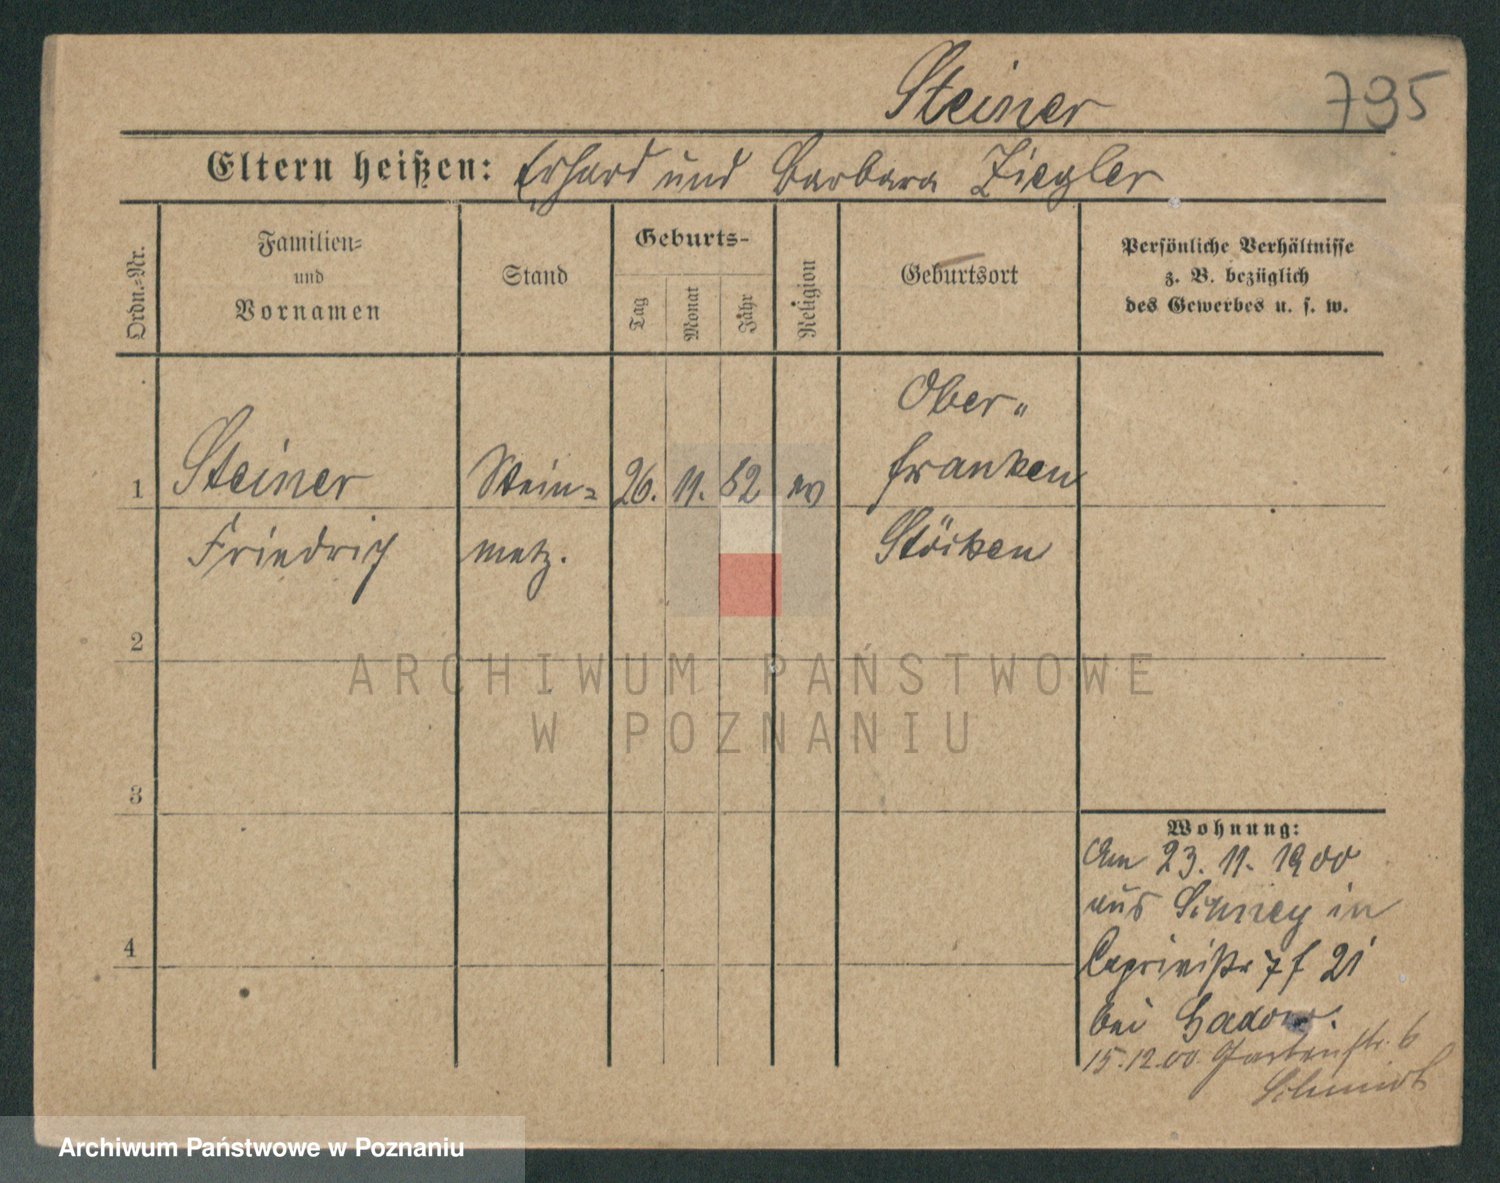 Steiner
795
Eltern heißen: Erhard und Barbara Ziegler
Ordn.-Nr.
Familien-
und
Vornamen
Stand
Geburts-
Tag
Monat
Jahr
Religion
Geburtsort
Persönliche Verhältnisse
z. B. bezüglich
des Gewerbes u. s. w.
Ober-
1 Steiner Stein- 26. 11. 82 ev franken
Friedrich metz. Stöcken
2
3
4
Wohnung:
Am 23. 11. 1900
aus Schney in
Caprivistr 7 f 21
bei
15.12.00. Gartenstr. 6
Schmidt
ARCHIWUM PAŃSTWOWE
W POZNANIU
Archiwum Państwowe w Poznaniu